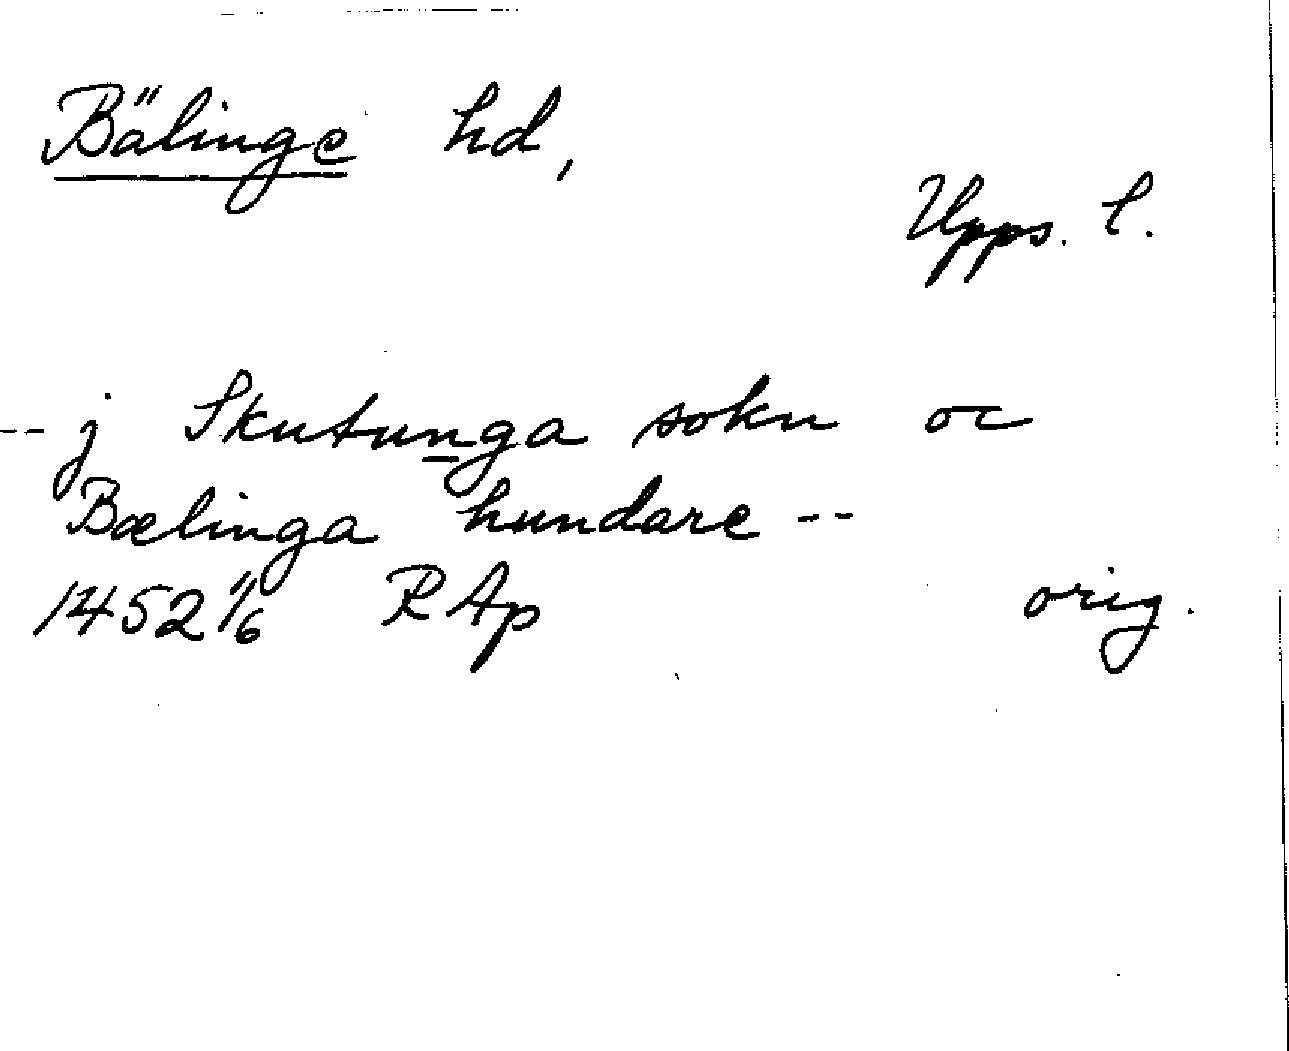 Bälinge hd,
Upps. l.
-- j Skutunga sokn oc
Bælinga hundare --
1452 11/6 RAp orig.